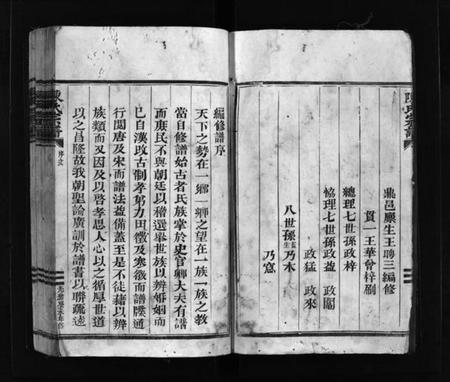 鼎邑廩生王聘三編修
貫一王華曾梓刷
總理七世孫政梓
協理七世孫政盈 政閣
政猛 政來
八世孫生員乃木
乃寬
編修譜序
天下之勢在一鄉一鄉之望在一族一族之教
當自修譜始古者氏族掌於史官卿大夫有譜
而庶民不與朝廷以稽選舉世族以辨婚姻而
已自漢改古制孝弟力田徵及寒微而譜牒通
行閭唐及宋而譜法益備蓋至是不徒藉以辨
族類而又因及以啓孝思人心以之循厚世道
以之昌隆故我朝聖諭廣訓於譜書以聯疏遠